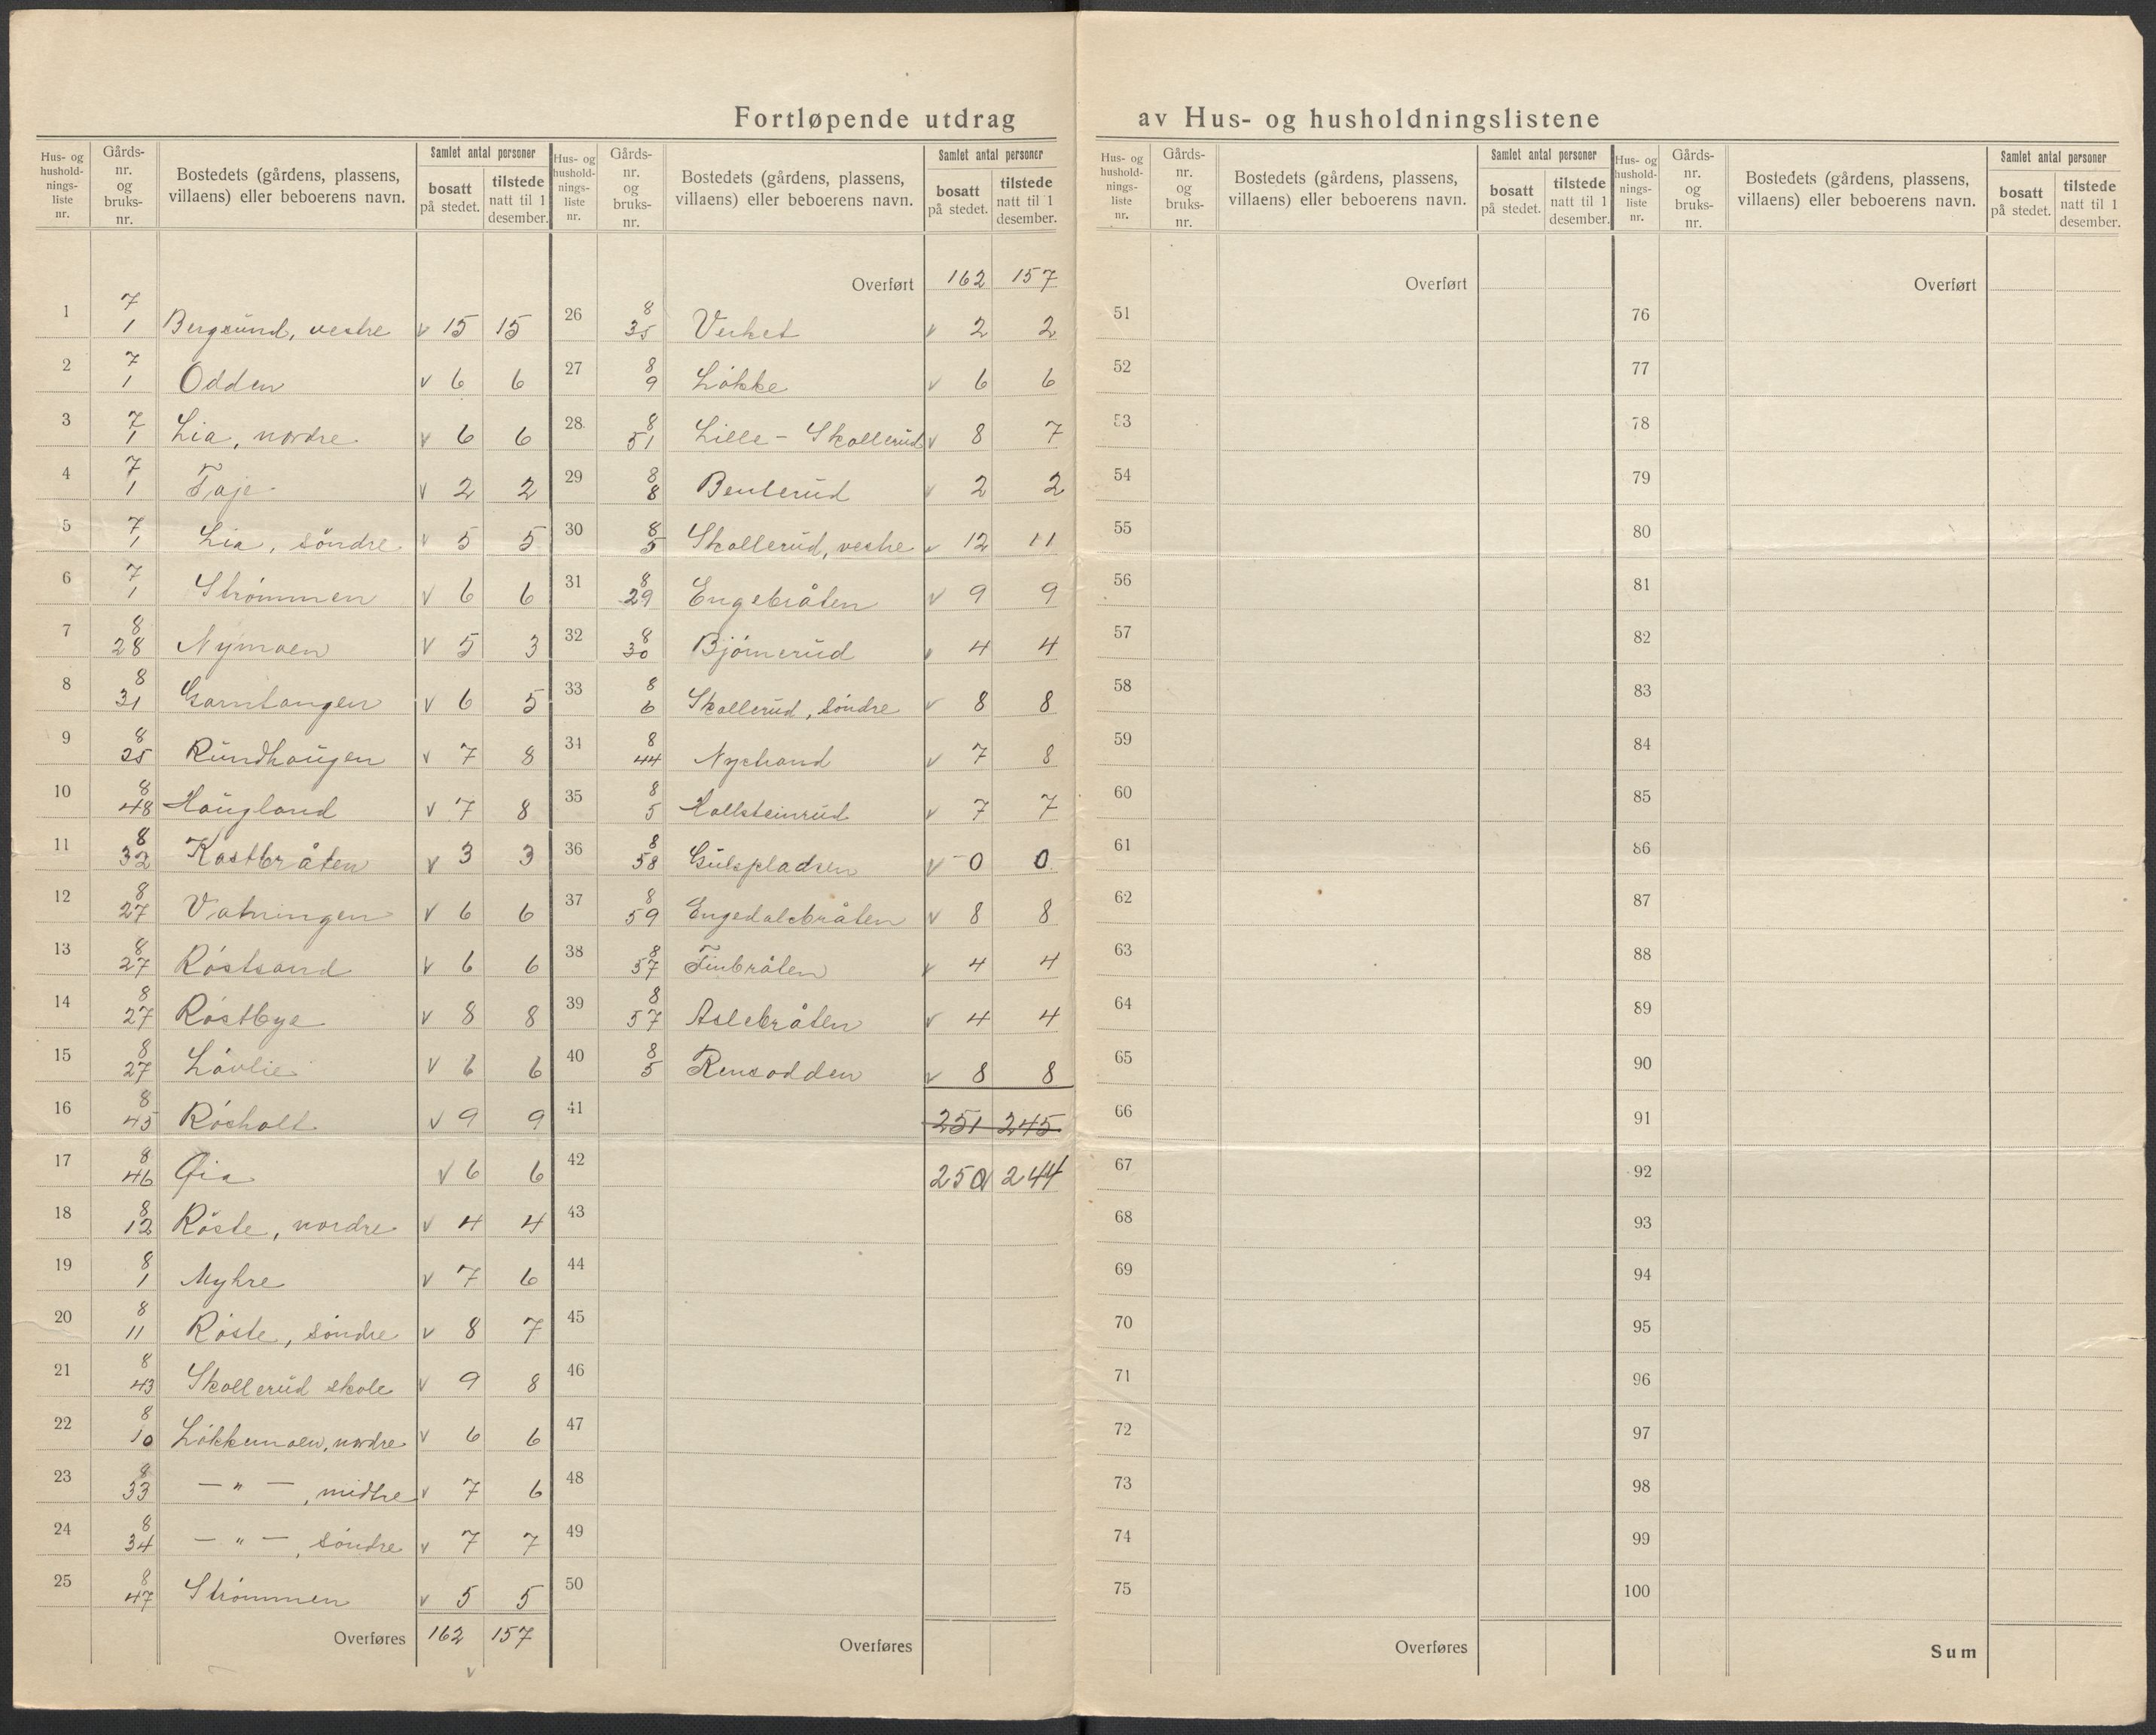 Fortløpende utdrag av Hus- og husholdningslistene
Hus- og husholdnings-liste nr. | Gårds-nr. og bruks-nr. | Bostedets (gårdens, plassens, villaens) eller beboerens navn. | Samlet antal personer | bosatt på stedet. | tilstede natt til 1 desember.
1 7/1 Bergsund, vestre v 15 15
2 7/1 Odden v 6 6
3 7/1 Lia, nordre v 6 6
4 7/1 Taje v 2 2
5 7/1 Lia, söndre v 5 5
6 7/1 Strömmen v 6 6
7 8/28 Nymoen v 5 3
8 8/31 Garntangen v 6 5
9 8/25 Rundhaugen v 7 8
10 8/48 Haugland v 7 8
11 8/32 Kastbråten v 3 3
12 8/27 Vatningen v 6 6
13 8/27 Röstsand v 6 6
14 8/27 Röstbye v 8 8
15 8/27 Lövlie v 6 6
16 8/45 Rösholt v 9 9
17 8/46 Øia v 6 6
18 8/12 Röste, nordre v 4 4
19 8/1 Myhre v 7 6
20 8/11 Röste, söndre v 8 7
21 8/43 Skollerud skole v 9 8
22 8/10 Lökkemoen, nordre v 6 6
23 8/33 — " —, midtre v 7 6
24 8/34 — " —, söndre v 7 7
25 8/47 Strömmen v 5 5
Overføres 162 157
v
Hus- og husholdnings-liste nr. | Gårds-nr. og bruks-nr. | Bostedets (gårdens, plassens, villaens) eller beboerens navn. | Samlet antal personer | bosatt på stedet. | tilstede natt til 1 desember.
Overført 162 157
26 8/35 Verket v 2 2
27 8/9 Lökke v 6 6
28 8/51 Lille - Skollerud v 8 7
29 8/8 Benterud v 2 2
30 8/5 Skollerud, vestre v 12 11
31 8/29 Engebråten v 9 9
32 8/30 Björnerud v 4 4
33 8/6 Skollerud, söndre v 8 8
34 8/44 Nystrand v 7 8
35 8/5 Hallsteinrud v 7 7
36 8/58 Gulspladsen v 0 0
37 8/59 Engedalsbråten v 8 8
38 8/57 Finbråten v 4 4
39 8/57 Aslebråten v 4 4
40 8/5 Rensodden v 8 8
41 251 245
42 250 244
43
44
45
46
47
48
49
50
Overføres
Hus- og husholdnings-liste nr. | Gårds-nr. og bruks-nr. | Bostedets (gårdens, plassens, villaens) eller beboerens navn. | Samlet antal personer | bosatt på stedet. | tilstede natt til 1 desember.
Overført
51
52
53
54
55
56
57
58
59
60
61
62
63
64
65
66
67
68
69
70
71
72
73
74
75
Overføres
Hus- og husholdnings-liste nr. | Gårds-nr. og bruks-nr. | Bostedets (gårdens, plassens, villaens) eller beboerens navn. | Samlet antal personer | bosatt på stedet. | tilstede natt til 1 desember.
Overført
76
77
78
79
80
81
82
83
84
85
86
87
88
89
90
91
92
93
94
95
96
97
98
99
100
Sum